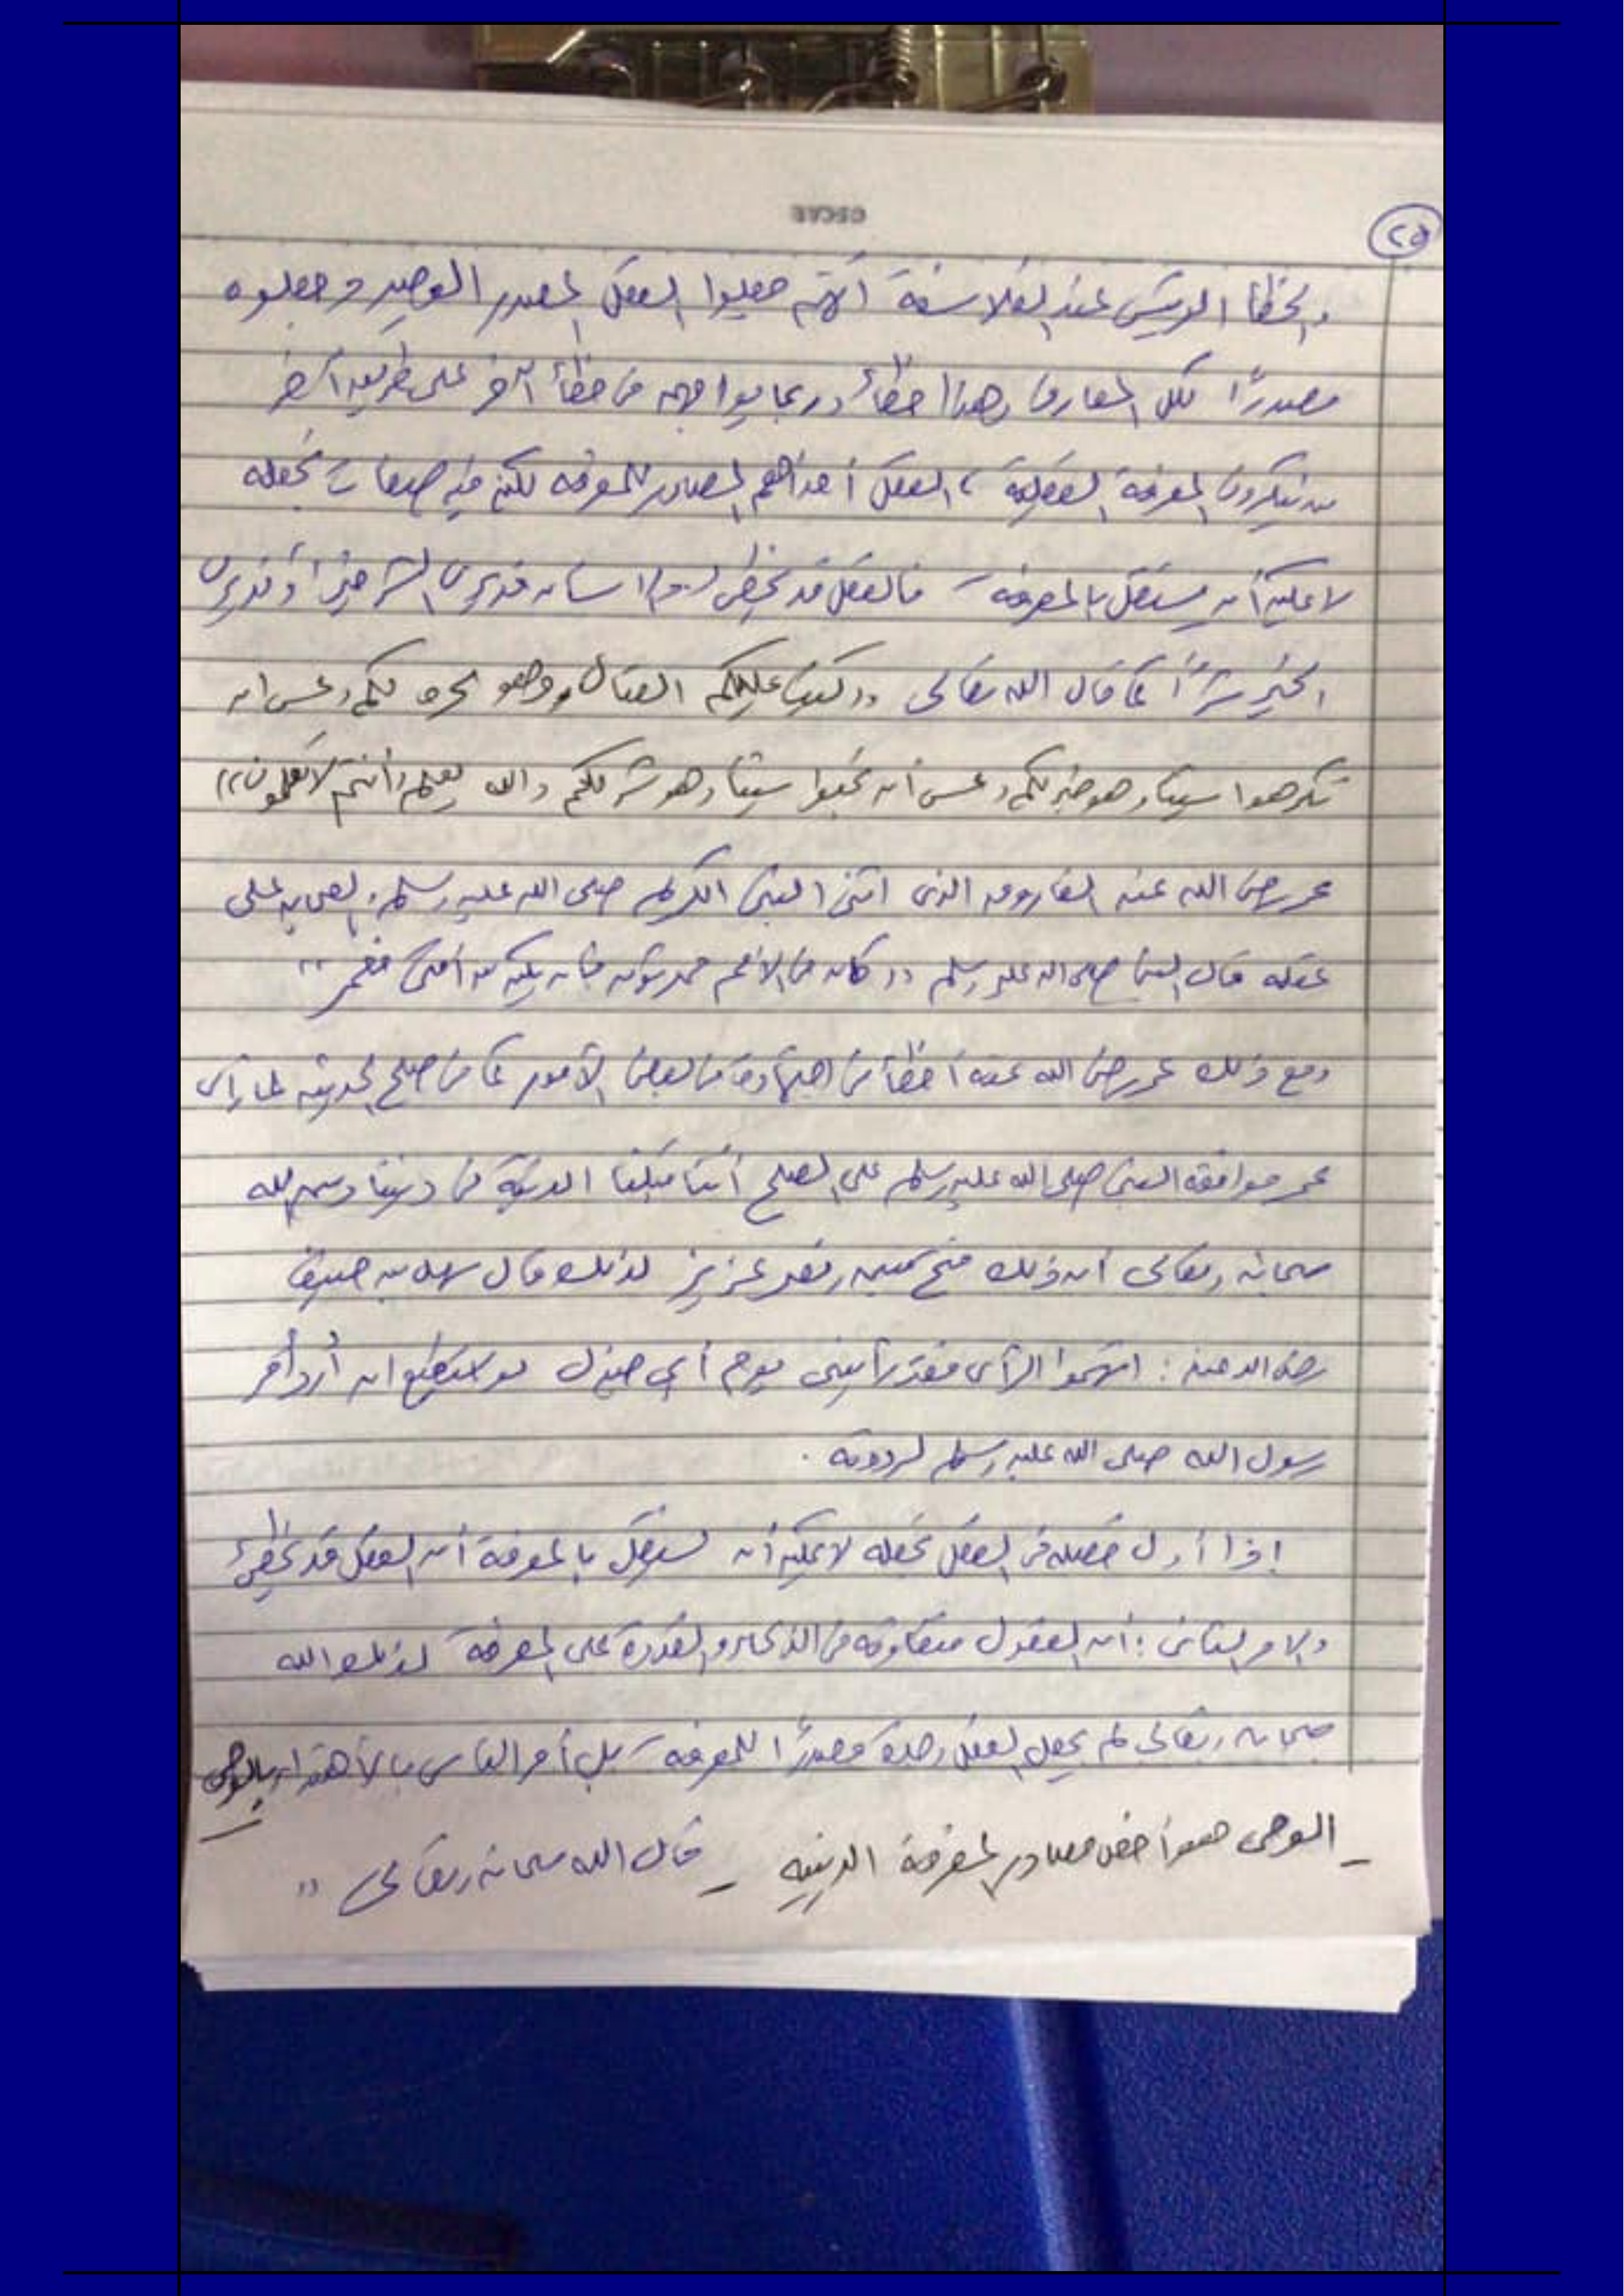 ٢٥
والخطأ الرئيس عند الفلاسفة أنهم جعلوا العقل المصدر الوحيد وجعلوه
مصدرًا لكل المعارف وهذا خطأ وربما يواجهه من خطأ آخر على طريق آخر
من ينكرون المعرفة العقلية، العقل أحد أهم المصادر للمعرفة لكن فيه صفات تجعله
لا يمكن أن يستقل بالمعرفة فالعقل قد يخطئ قد يرى الشر خيرًا وقد يرى
الخير شرًا كما قال الله تعالى ((كتب عليكم القتال وهو كره لكم وعسى ان
تكرهوا شيئا وهو خير لكم وعسى أن تحبوا شيئا وهو شر لكم والله يعلم وأنتم لا تعلمون))
عمر رضى الله عنه الفاروق الذى اثنى النبى الكريم صلى الله عليه وسلم والصحابه على
عقله قال النبى صلى الله عليه وسلم ((كان فى الأمم محدثون فان يكن من أمتى فعمر))
ومع ذلك عمر رضى الله عنه أخطأ فى اجتهاده فى بعض الأمور كما فى صلح الحديبيه لما رأى
عمر موافقه النبى صلى الله عليه وسلم على الصلح أننا قبلنا الدنية فى ديننا وسمى الله
سبحانه وتعالى أن ذلك فتح مبين ونصر عزيز لذلك قال سهل بن حنيف
رضى الله عنه : اتهموا الرأى فقد رأيتنى يوم أبي جندل لو استطيع ان أرد أمر
رسول الله صلى الله عليه وسلم لرددته .
إذا أول خصله فى العقل تجعله لا يمكن أن يستقل بالمعرفة أن العقل قد يخطئ
والامر الثانى : أن العقول متفاوته فى الذكاء والقدرة على المعرفة لذلك الله
سبحانه وتعالى لم يجعل العقل وحده مصدرًا للمعرفة بل أمر الناس بالاهتداء بالوحى
_ الوحى هو أخص مصادر المعرفة الدينيه _ قال الله سبحانه وتعالى ((